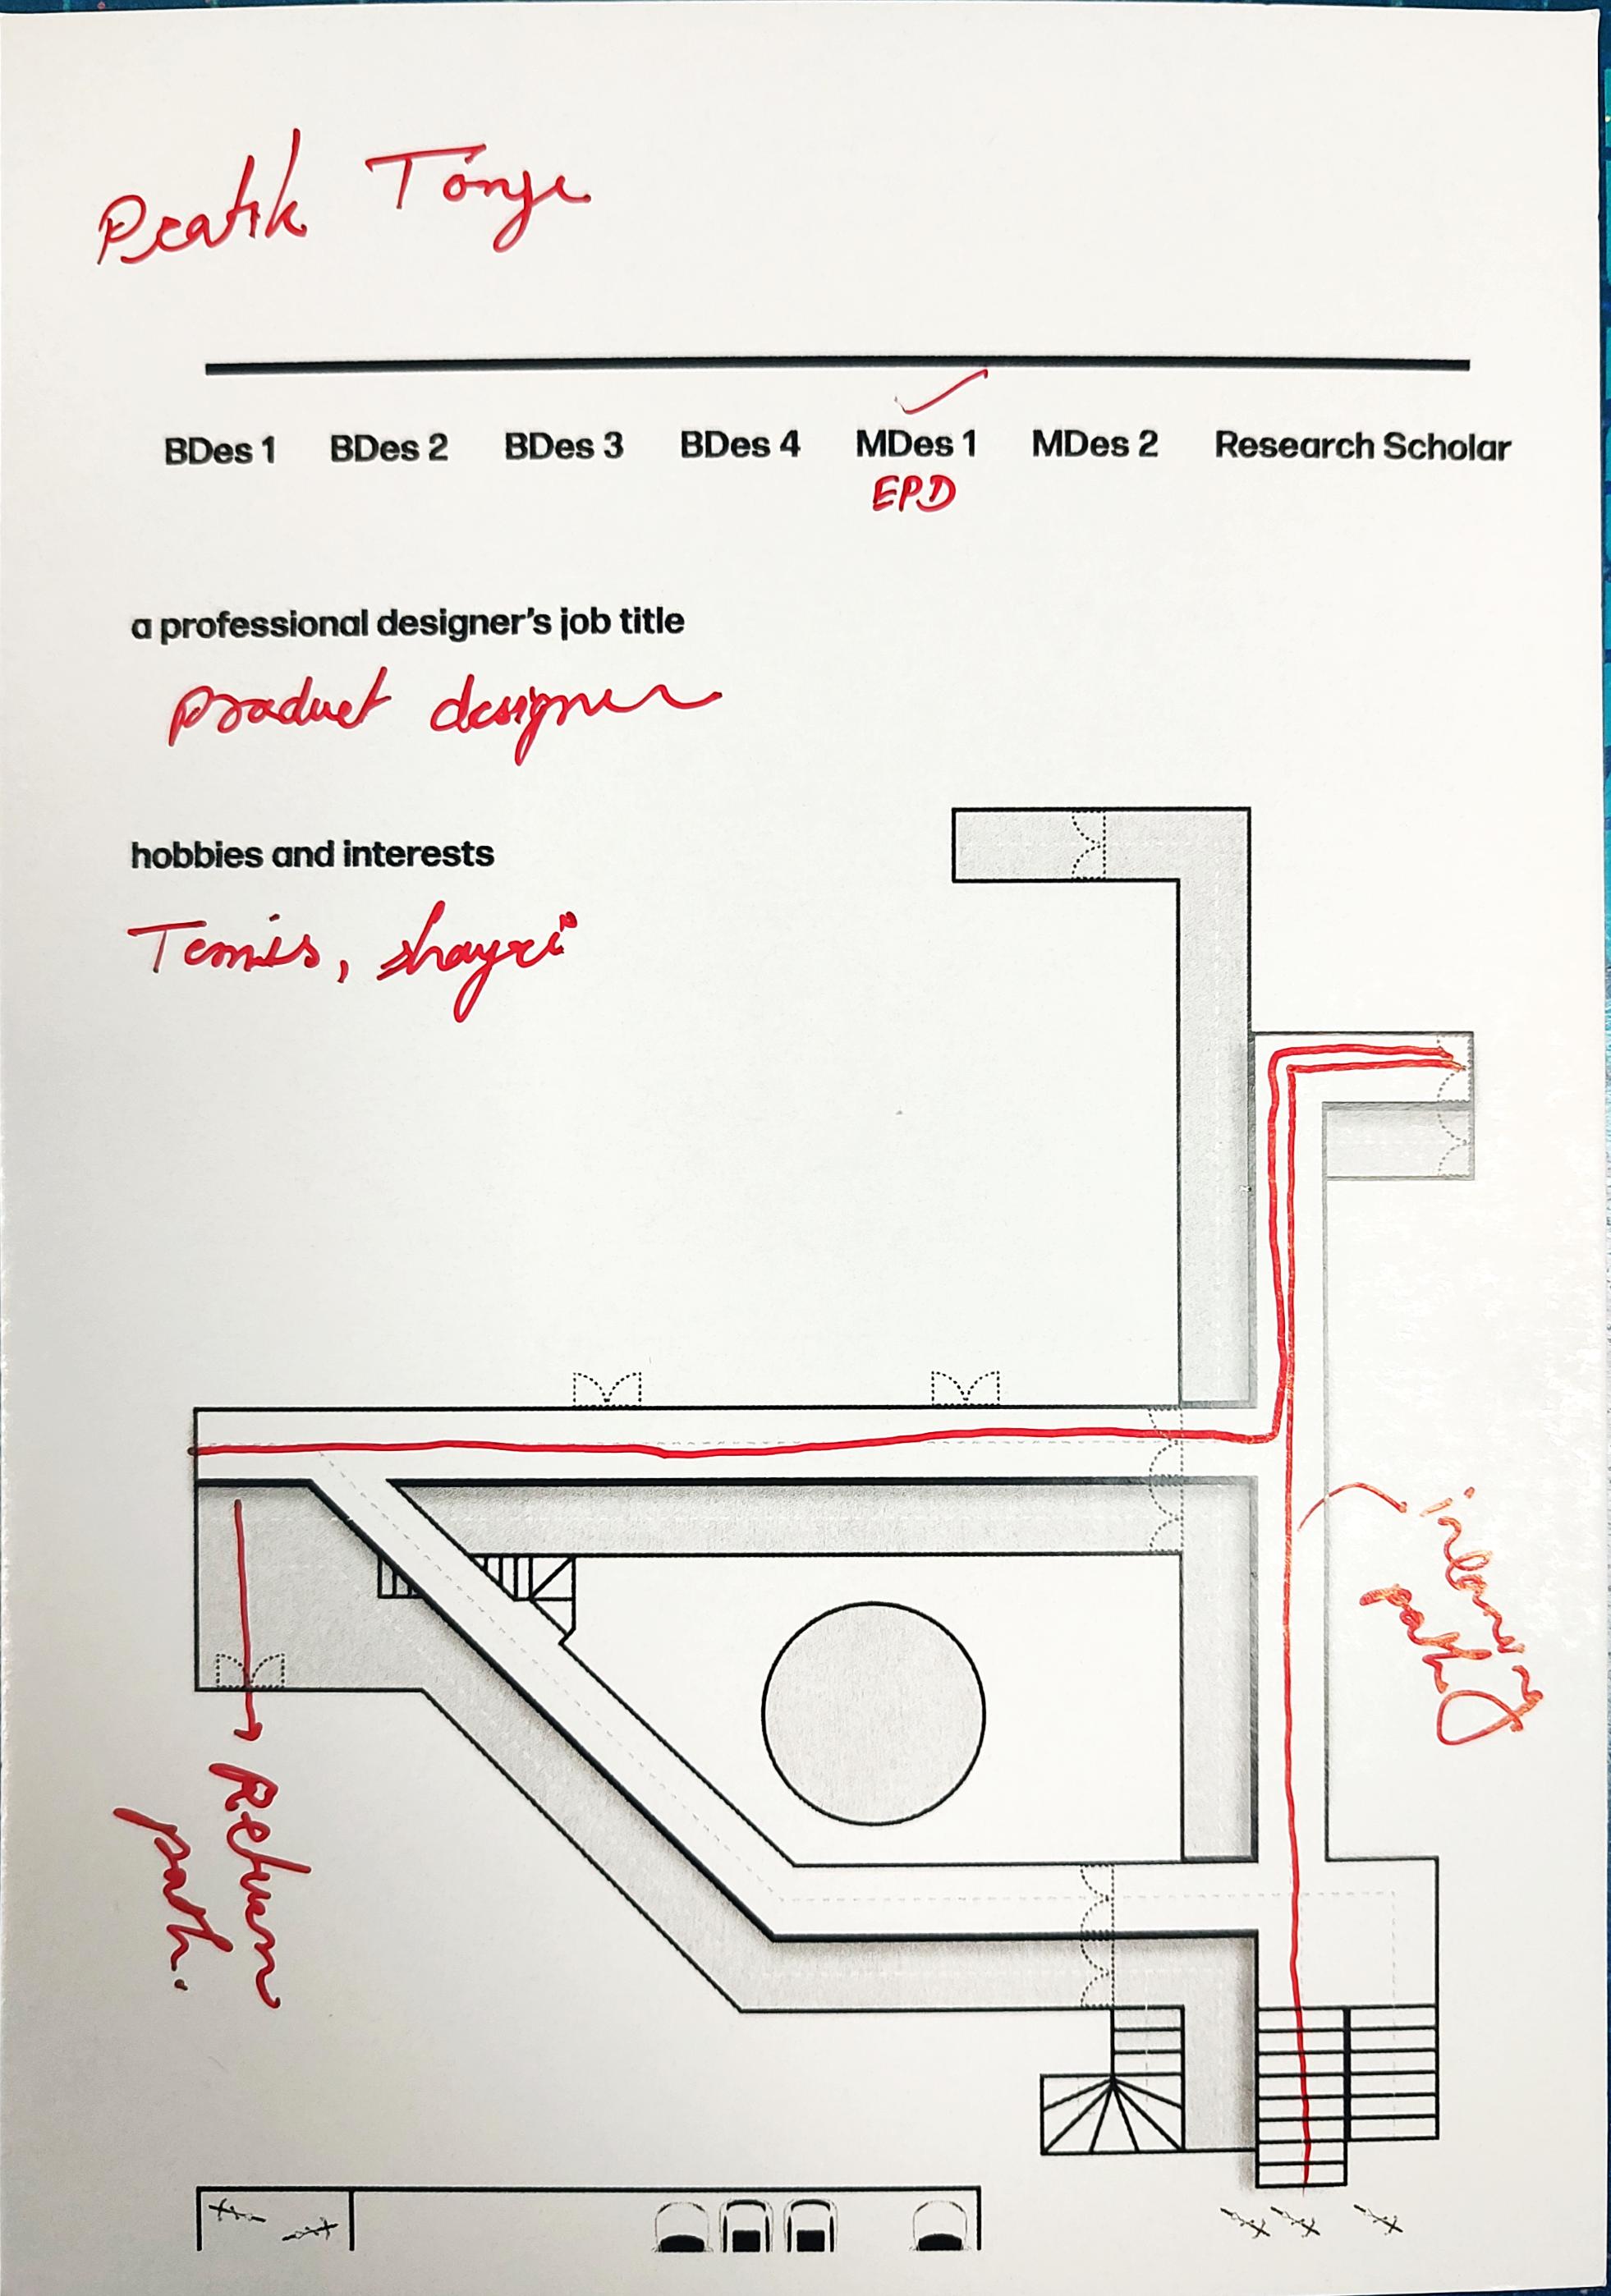 Pratik Tonge
BDes 1 BDes 2 BDes 3 BDes 4 MDes 1 MDes 2 Research Scholar
EPD
a professional designer's job title
product designer
hobbies and interests
Tennis, shayri
incoming
path
Return
path.